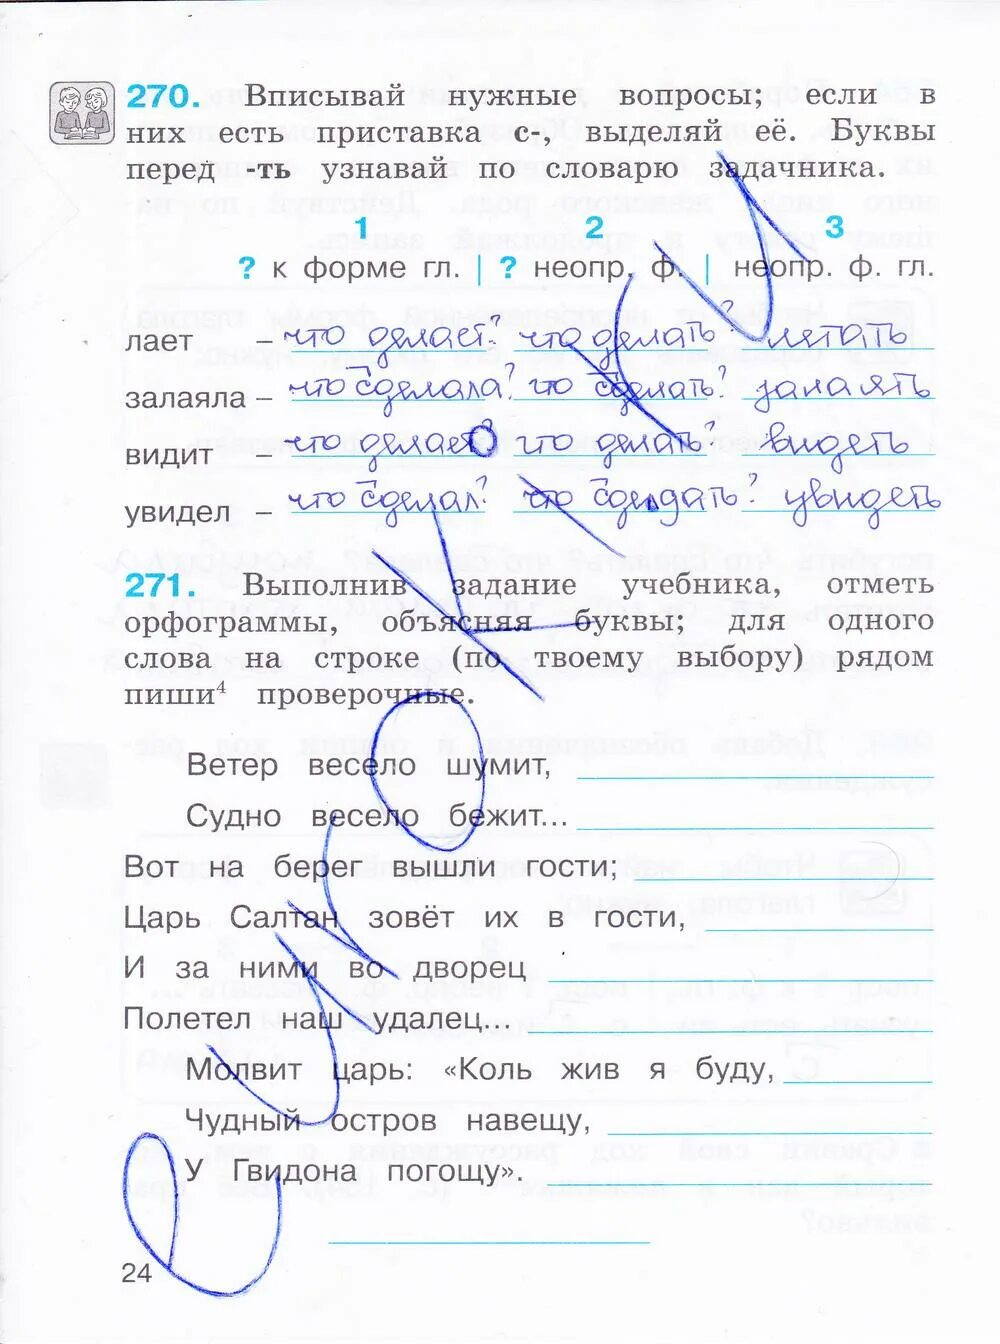 270. Вписывай нужные вопросы; если в
них есть приставка с-, выделяй её. Буквы
перед -ть узнавай по словарю задачника.
1 2 3
? к форме гл. | ? неопр. ф. | неопр. ф. гл.
лает – что делает? что делать? лятать
залаяла – что сделала? что сделать? залаять
видит – что делает? что делать? видеть
увидел – что сделал? что сделать? увидеть
271. Выполнив задание учебника, отметь
орфограммы, объясняя буквы; для одного
слова на строке (по твоему выбору) рядом
пиши⁴ проверочные.
Ветер весело шумит,
Судно весело бежит...
Вот на берег вышли гости;
Царь Салтан зовёт их в гости,
И за ними во дворец
Полетел наш удалец...
Молвит царь: «Коль жив я буду,
Чудный остров навещу,
У Гвидона погощу».
24